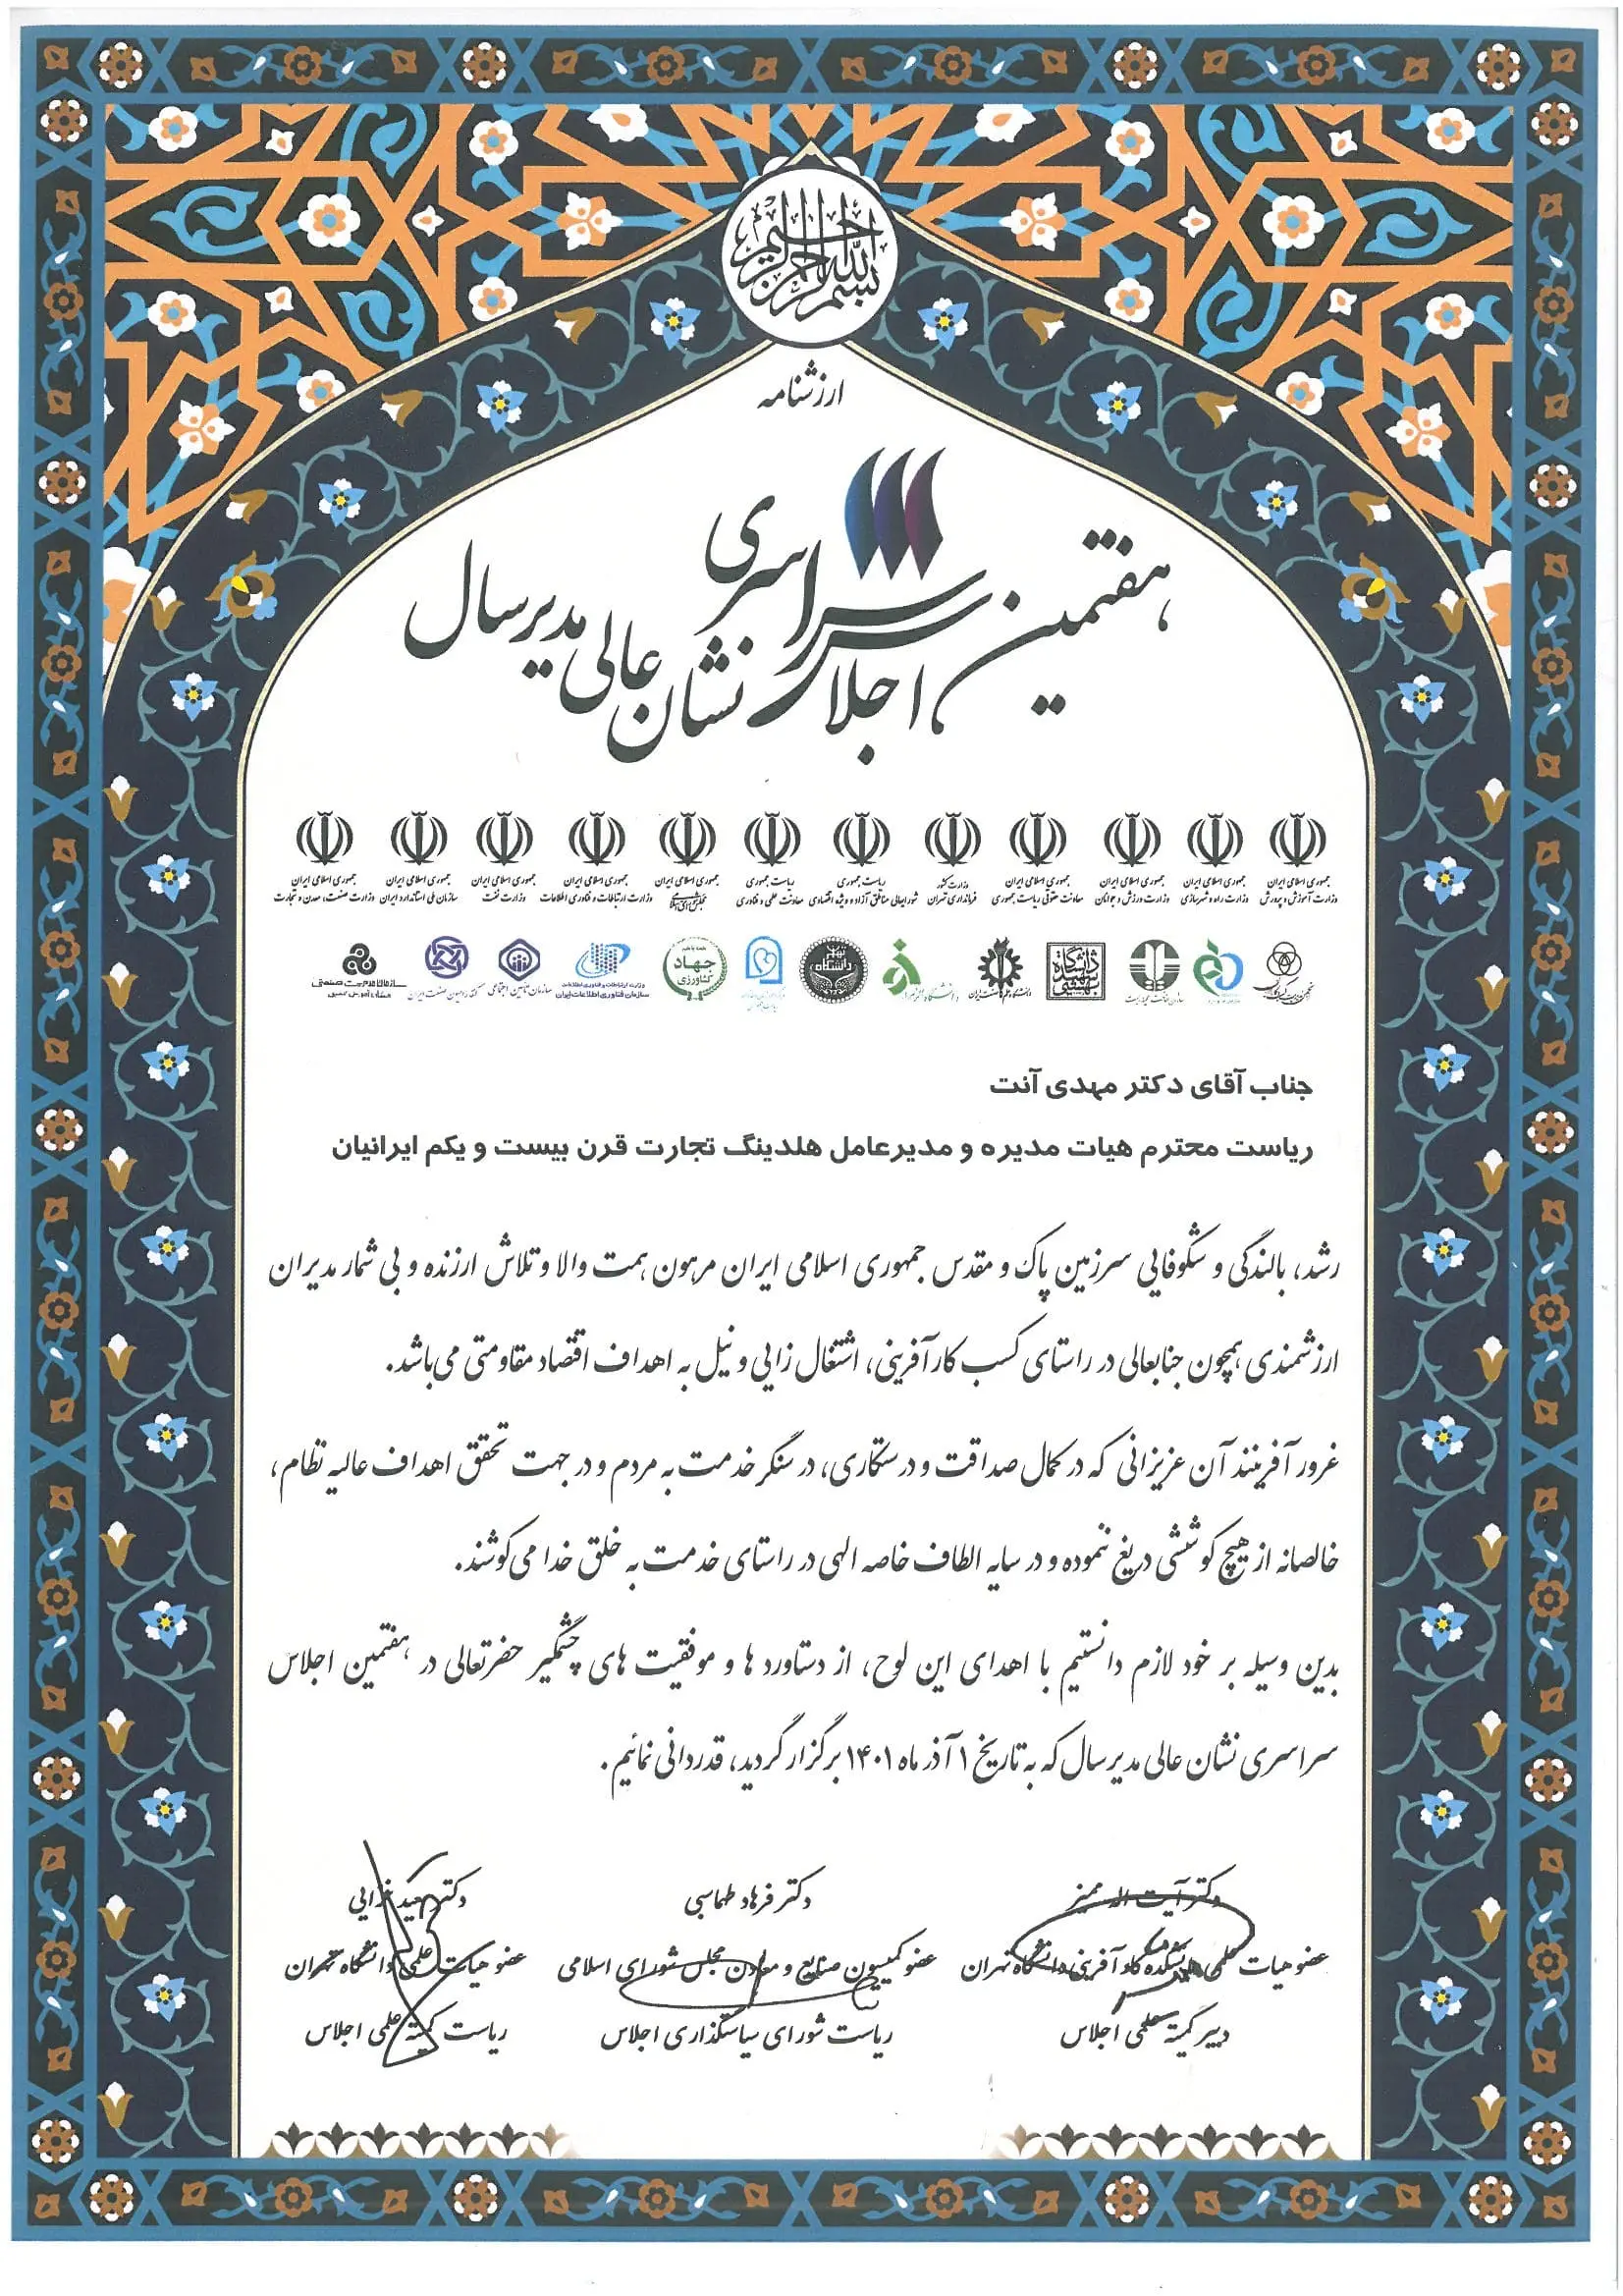 بسم الله الرحمن الرحیم
ارزشنامه
هفتمین اجلاس سراسری نشان عالی مدیر سال
جمهوری اسلامی ایران
وزارت آموزش و پرورش
جمهوری اسلامی ایران
وزارت راه و شهرسازی
جمهوری اسلامی ایران
وزارت ورزش و جوانان
جمهوری اسلامی ایران
معاونت حقوقی ریاست جمهوری
وزارت کشور
فرمانداری تهران
ریاست جمهوری
شورایعالی مناطق آزاد و ویژه اقتصادی
ریاست جمهوری
معاونت علمی و فناوری
جمهوری اسلامی ایران
مجلس شورای اسلامی
جمهوری اسلامی ایران
وزارت ارتباطات و فناوری اطلاعات
جمهوری اسلامی ایران
وزارت نفت
جمهوری اسلامی ایران
سازمان ملی استاندارد ایران
جمهوری اسلامی ایران
وزارت صنعت، معدن و تجارت
دانشگاه علم و صنعت ایران
دانشگاه الزهرا
دانشگاه تهران
جهاد کشاورزی
وزارت ارتباطات و فناوری اطلاعات
سازمان فناوری اطلاعات ایران
سازمان تأمین اجتماعی
سازمان مدیریت صنعتی
جناب آقای دکتر مهدی آنت
ریاست محترم هیات مدیره و مدیرعامل هلدینگ تجارت قرن بیست و یکم ایرانیان
رشد، بالندگی و شکوفایی سرزمین پاک و مقدس جمهوری اسلامی ایران مرهون همت والا و تلاش ارزنده و بی شمار مدیران
ارزشمندی همچون جنابعالی در راستای کسب کارآفرینی، اشتغال زایی و نیل به اهداف اقتصاد مقاومتی می‌باشد.
غرور آفرینند آن عزیزانی که در کمال صداقت و درستکاری، در سنگر خدمت به مردم و در جهت تحقق اهداف عالیه نظام،
خالصانه از هیچ کوششی دریغ ننموده و در سایه الطاف خاصه الهی در راستای خدمت به خلق خدا می‌کوشند.
بدین وسیله بر خود لازم دانستیم با اهدای این لوح، از دستاورد ها و موفقیت های چشمگیر حضرتعالی در هفتمین اجلاس
سراسری نشان عالی مدیر سال که به تاریخ ۱ آذر ماه ۱۴۰۱ برگزار گردید، قدردانی نمائیم.
دکتر آیت اله ممیز
عضو هیات علمی دانشکده کارآفرینی دانشگاه تهران
دبیر کمیته علمی اجلاس
دکتر فرهاد طهماسبی
عضو کمیسیون صنایع و معادن مجلس شورای اسلامی
ریاست شورای سیاستگذاری اجلاس
دکتر
عضو هیات علمی دانشگاه تهران
ریاست کمیته علمی اجلاس